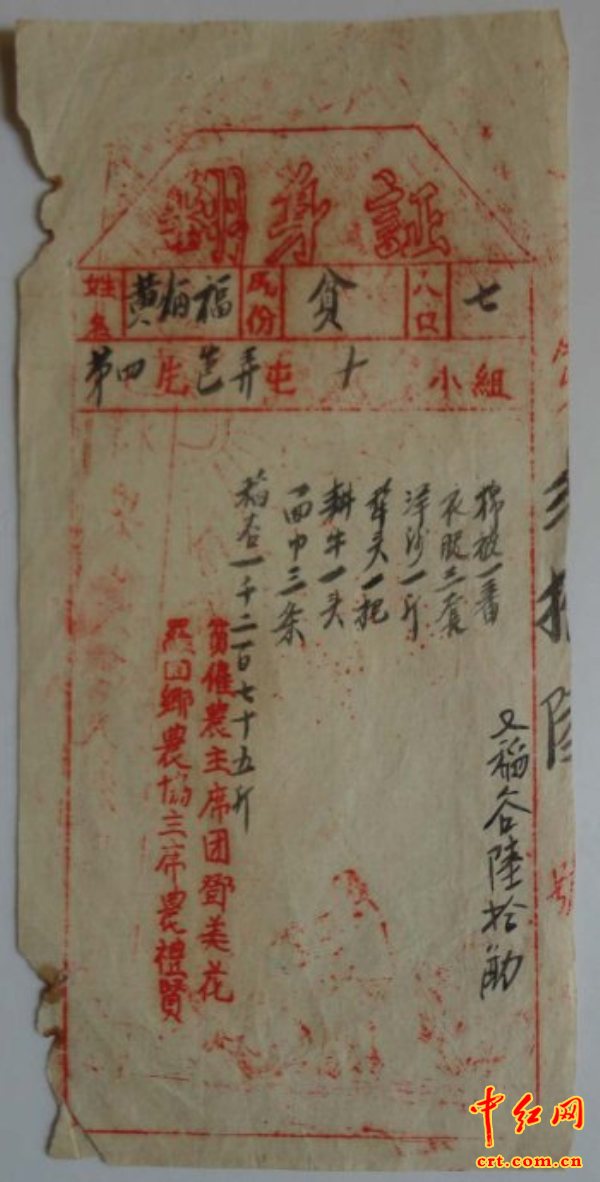 翻身証
姓名 黄炳福 成份 貧 人口 七
第四 庄 芭弄屯 十 小組
棉被一番
衣服三套
洋沙一斤
犂头一把
耕牛一头
面巾三条
稻谷一千二百七十五斤
又稲谷陸拾觔
貧僱農主席团鄧美花
田鄉農協主席農禮賢
拾陸
號
中红网
crt.com.cn